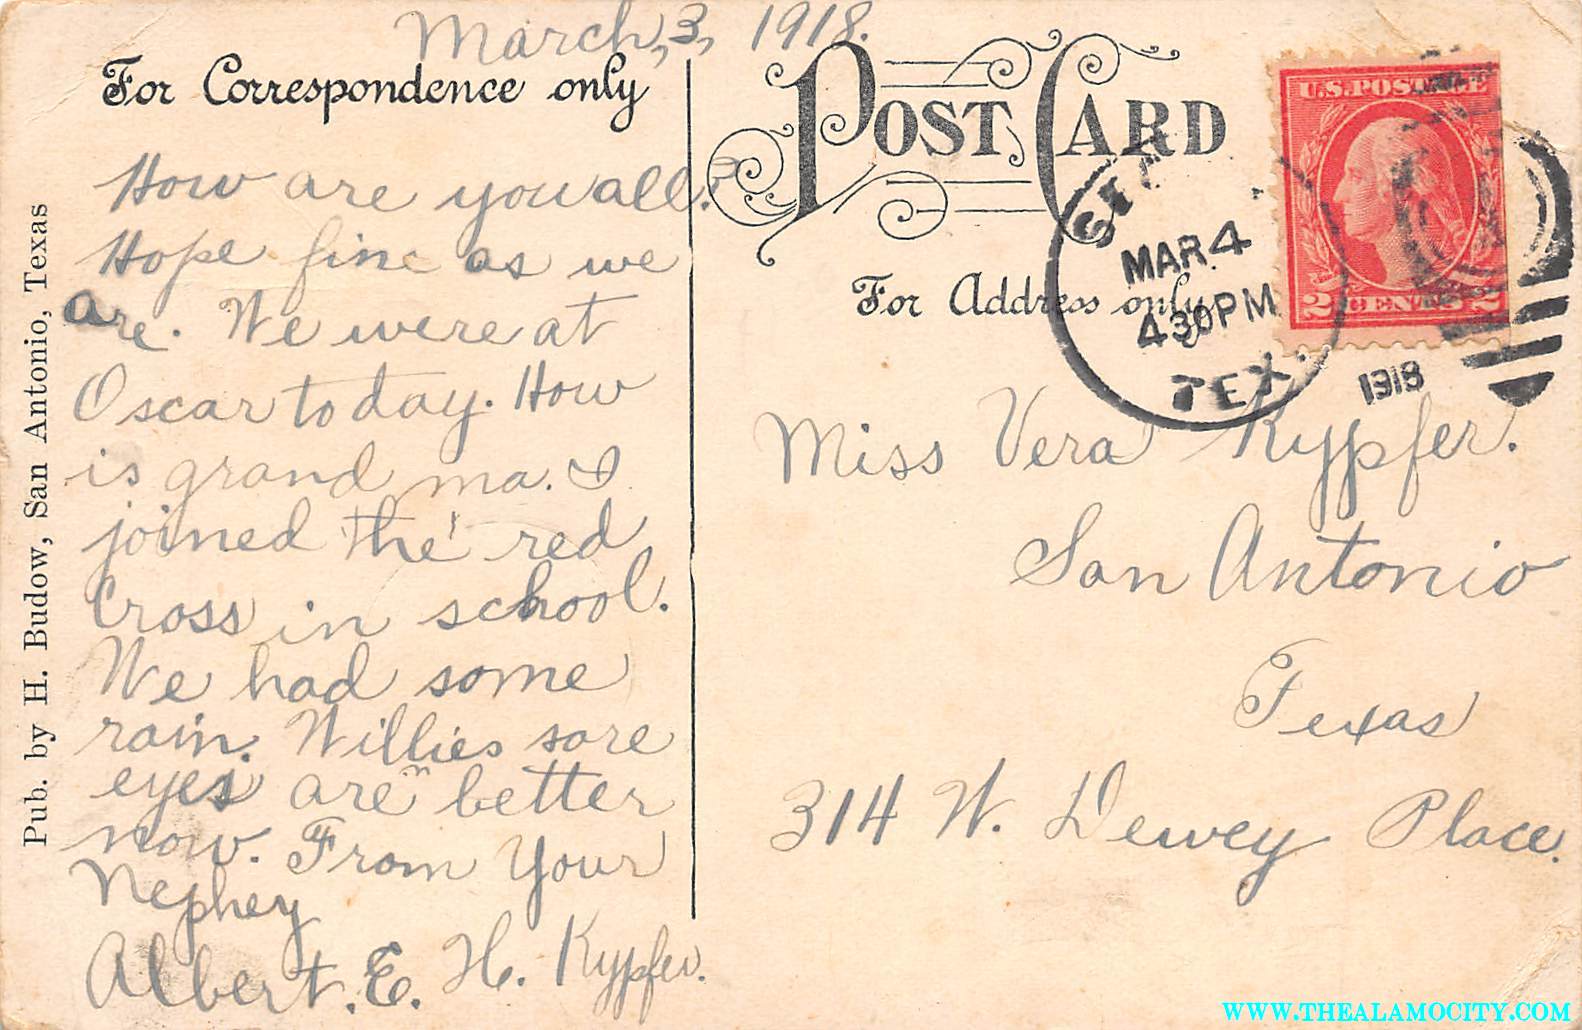 March, 3, 1918.
For Correspondence only
How are you all?
Hope fine as we
are. We were at
Oscar to day. How
is grand ma. I
joined the red
Cross in school.
We had some
rain. Willies sore
eyes are better
now. From Your
Nephey
Albert. E. H. Kypfer.
Pub. by H. Budow, San Antonio, Texas
POST CARD
For Address only
MAR 4
430PM
TEX.
1918
U.S. POSTAGE
2 CENTS 2
Miss Vera Kypfer.
San Antonio
Texas
314 W. Dewey Place.
WWW.THEALAMOCITY.COM